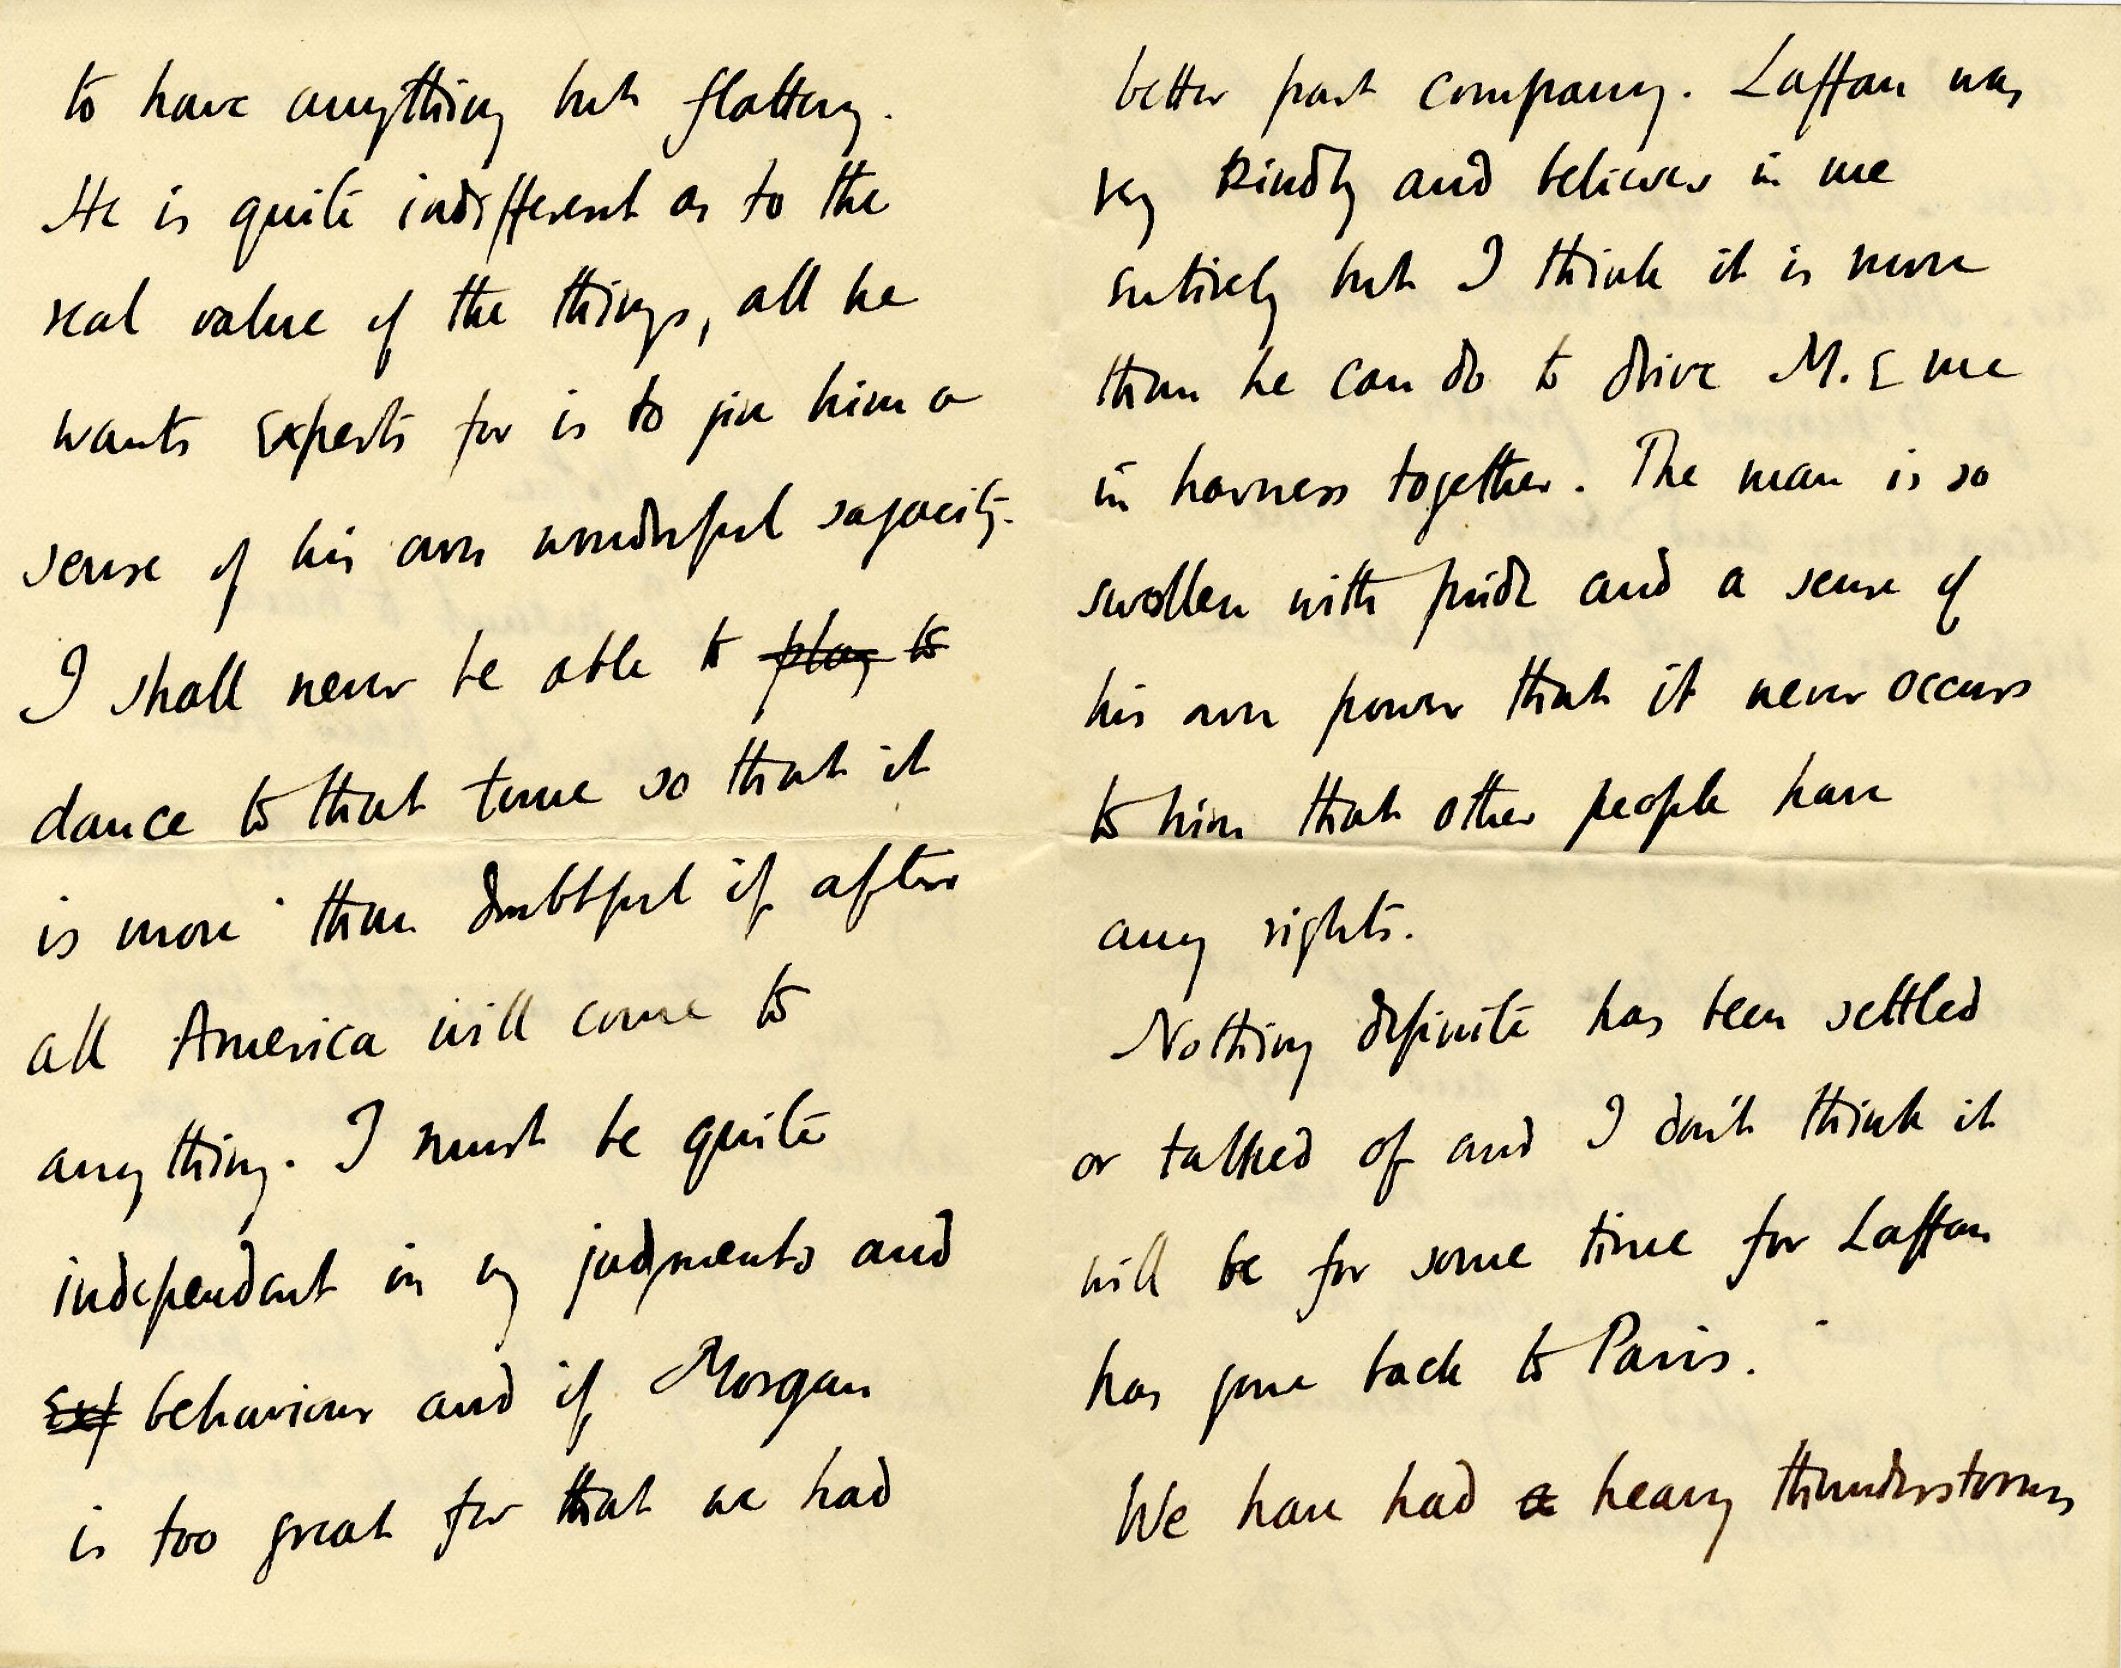 to have anything but flattery.
He is quite indifferent as to the
real value of the things, all he
wants experts for is to give him a
sense of his own wonderful sagacity.
I shall never be able to play to
dance to that tune so that it
is more than doubtful if after
all America will come to
anything. I must be quite
independent in my judgments and
exp behaviour and if Morgan
is too great for that we had
better part company. Laffan was
very kindly and believes in me
entirely but I think it is more
than he can do to drive M. & me
in harness together. The man is so
swollen with pride and a sense of
his own power that it never occurs
to him that other people have
any rights.
Nothing definite has been settled
or talked of and I don't think it
will be for some time for Laffan
has gone back to Paris.
We have had a heavy thunderstorms